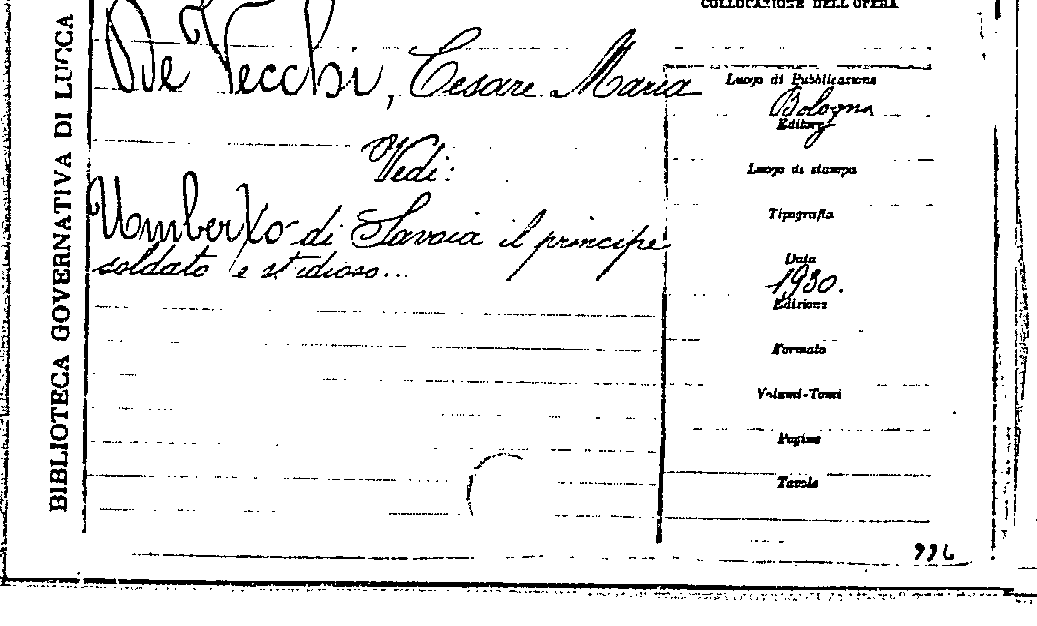 COLLOCAZIONE DELL'OPERA
BIBLIOTECA GOVERNATIVA DI LUCCA
De Vecchi, Cesare Maria
Vedi:
Umberto di Savoia il principe
soldato e studioso...
Luogo di Pubblicazione
Bologna
Editore
Luogo di stampa
Tipografia
Data
1930.
Edizione
Formato
Volumi-Tomi
Pagine
Tavole